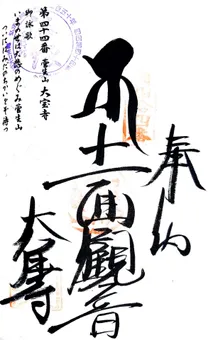 奉納
本十一面観音
大宝寺
第四十四番 菅生山 大宝寺
御詠歌
いまの世は大悲のめぐみ菅生山
ついにはみだのちかいをぞ待つ